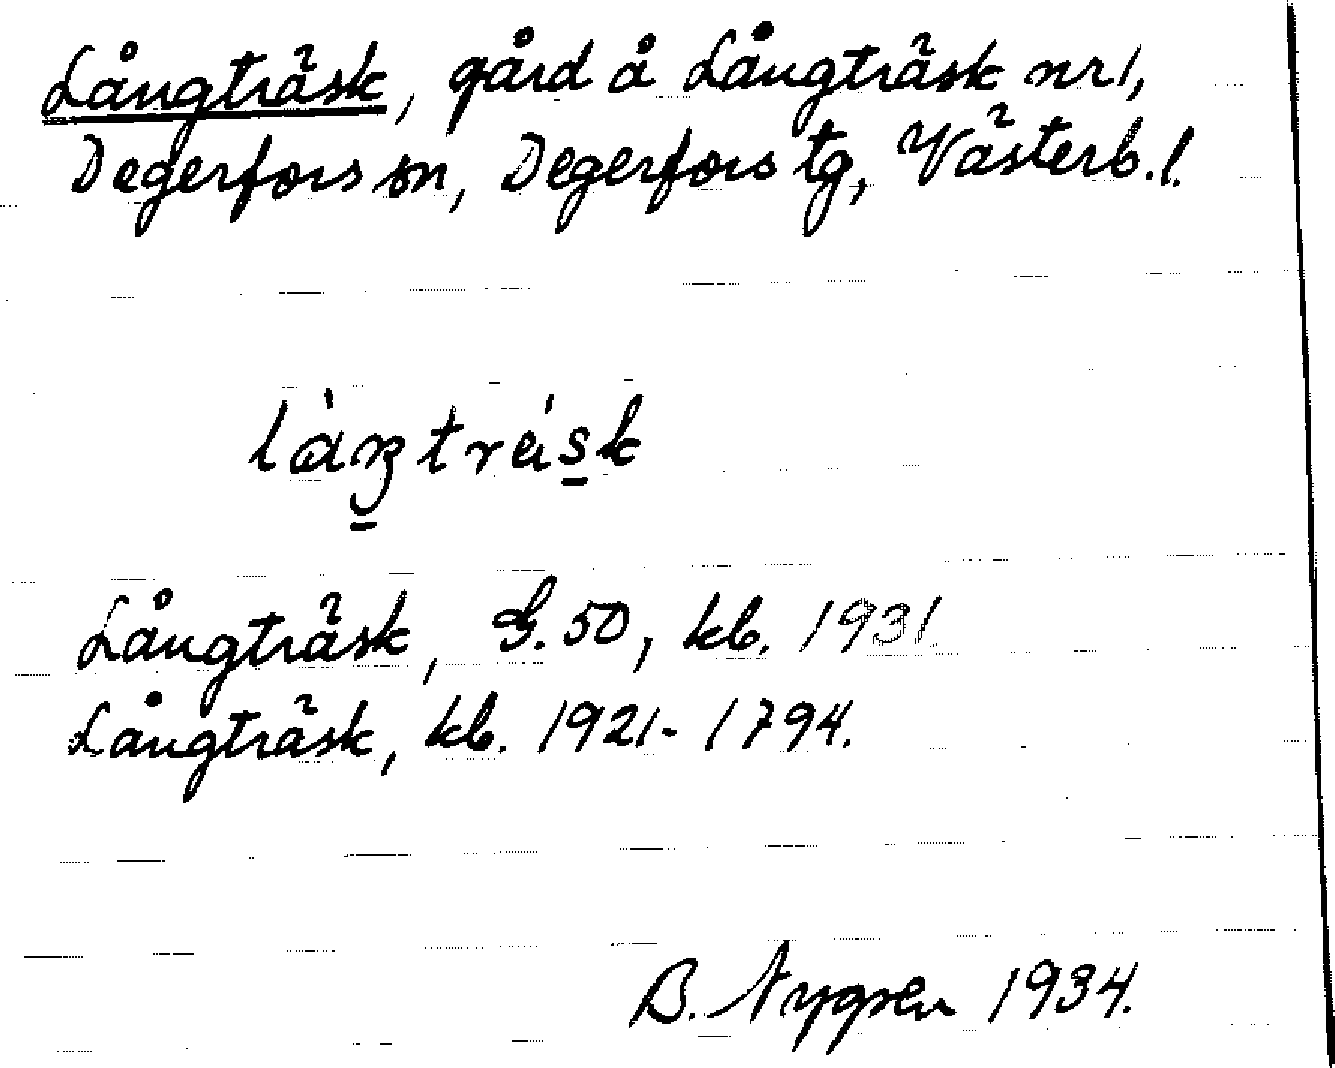 Långträsk, gård å Långträsk nr 1,
Degerfors sn, Degerfors tg, Västerb. l.
Långträsk, G. 50, kb. 1931.
Långträsk, kb. 1921-1794.
B. Nygren 1934.